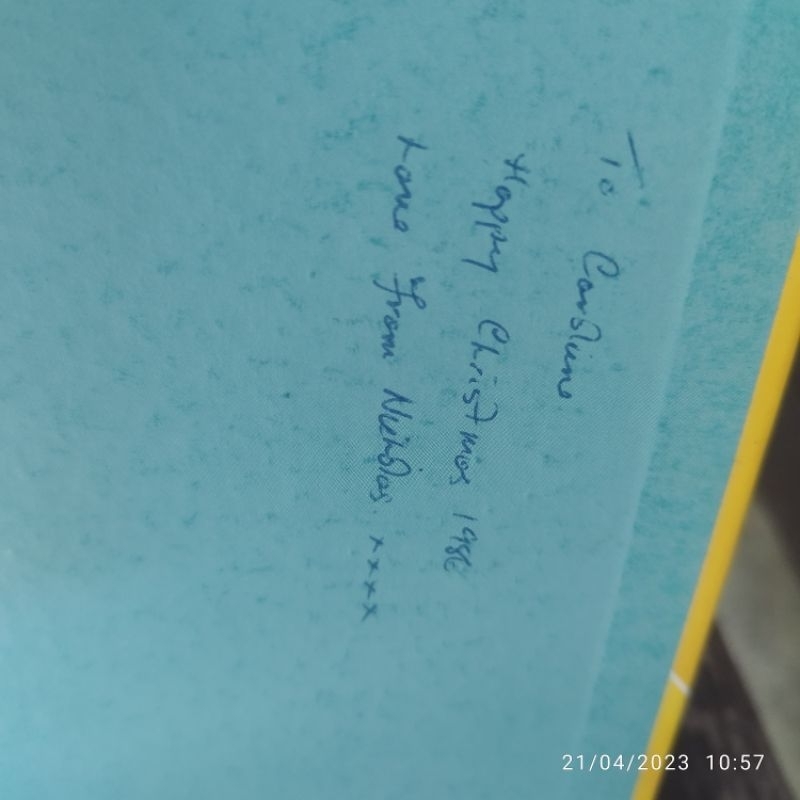 To Caroline
Happy Christmas 1986
Love from Nicholas. xxxx
21/04/2023 10:57